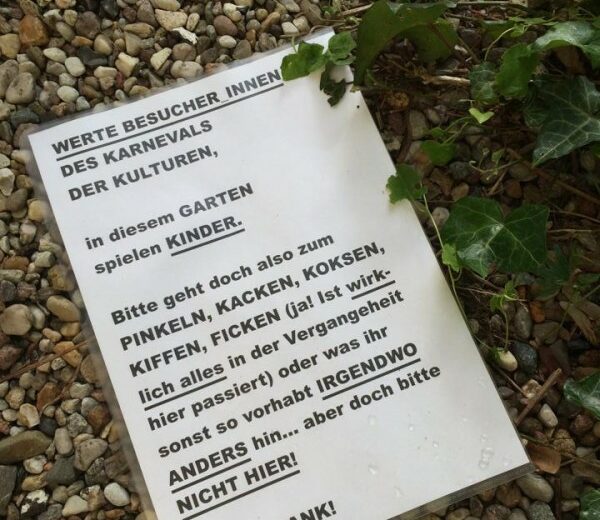 WERTE BESUCHER_INNEN
DES KARNEVALS
DER KULTUREN,
in diesem GARTEN
spielen KINDER.
Bitte geht doch also zum
PINKELN, KACKEN, KOKSEN,
KIFFEN, FICKEN (ja! Ist wirk-
lich alles in der Vergangeheit
hier passiert) oder was ihr
sonst so vorhabt IRGENDWO
ANDERS hin... aber doch bitte
NICHT HIER!